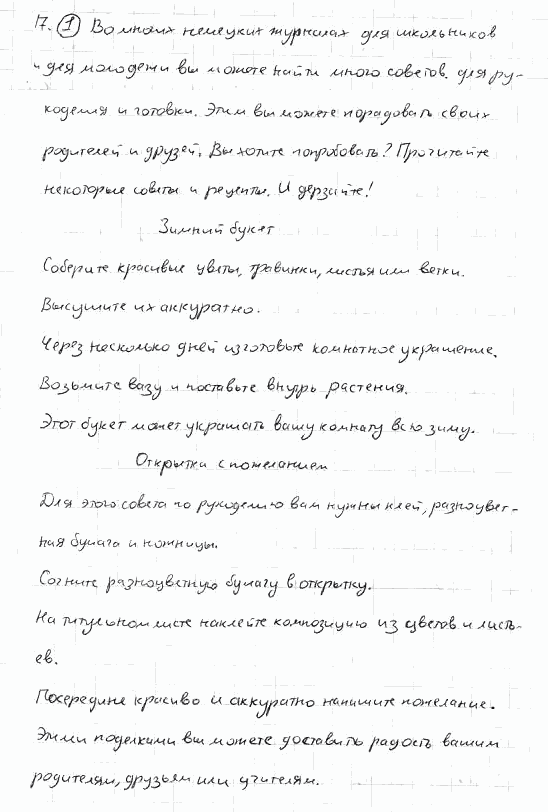 17. ① Во многих немецких журналах для школьников
и для молодежи вы можете найти много советов для ру-
коделия и готовки. Этим вы можете порадовать своих
родителей и друзей. Вы хотите попробовать? Прочитайте
некоторые советы и рецепты. И дерзайте!
Зимний букет
Соберите красивые цветы, травинки, листья или ветки.
Высушите их аккуратно.
Через несколько дней изготовьте комнатное украшение.
Возьмите вазу и поставьте внутрь растения.
Этот букет может украшать вашу комнату всю зиму.
Открытки с пожеланием
Для этого совета по рукоделию вам нужны клей, разноцвет-
ная бумага и ножницы.
Согните разноцветную бумагу в открытку.
На титульном листе наклейте композицию из цветов и листь-
ев.
Посередине красиво и аккуратно напишите пожелание.
Этими поделками вы можете доставить радость вашим
родителям, друзьям или учителям.